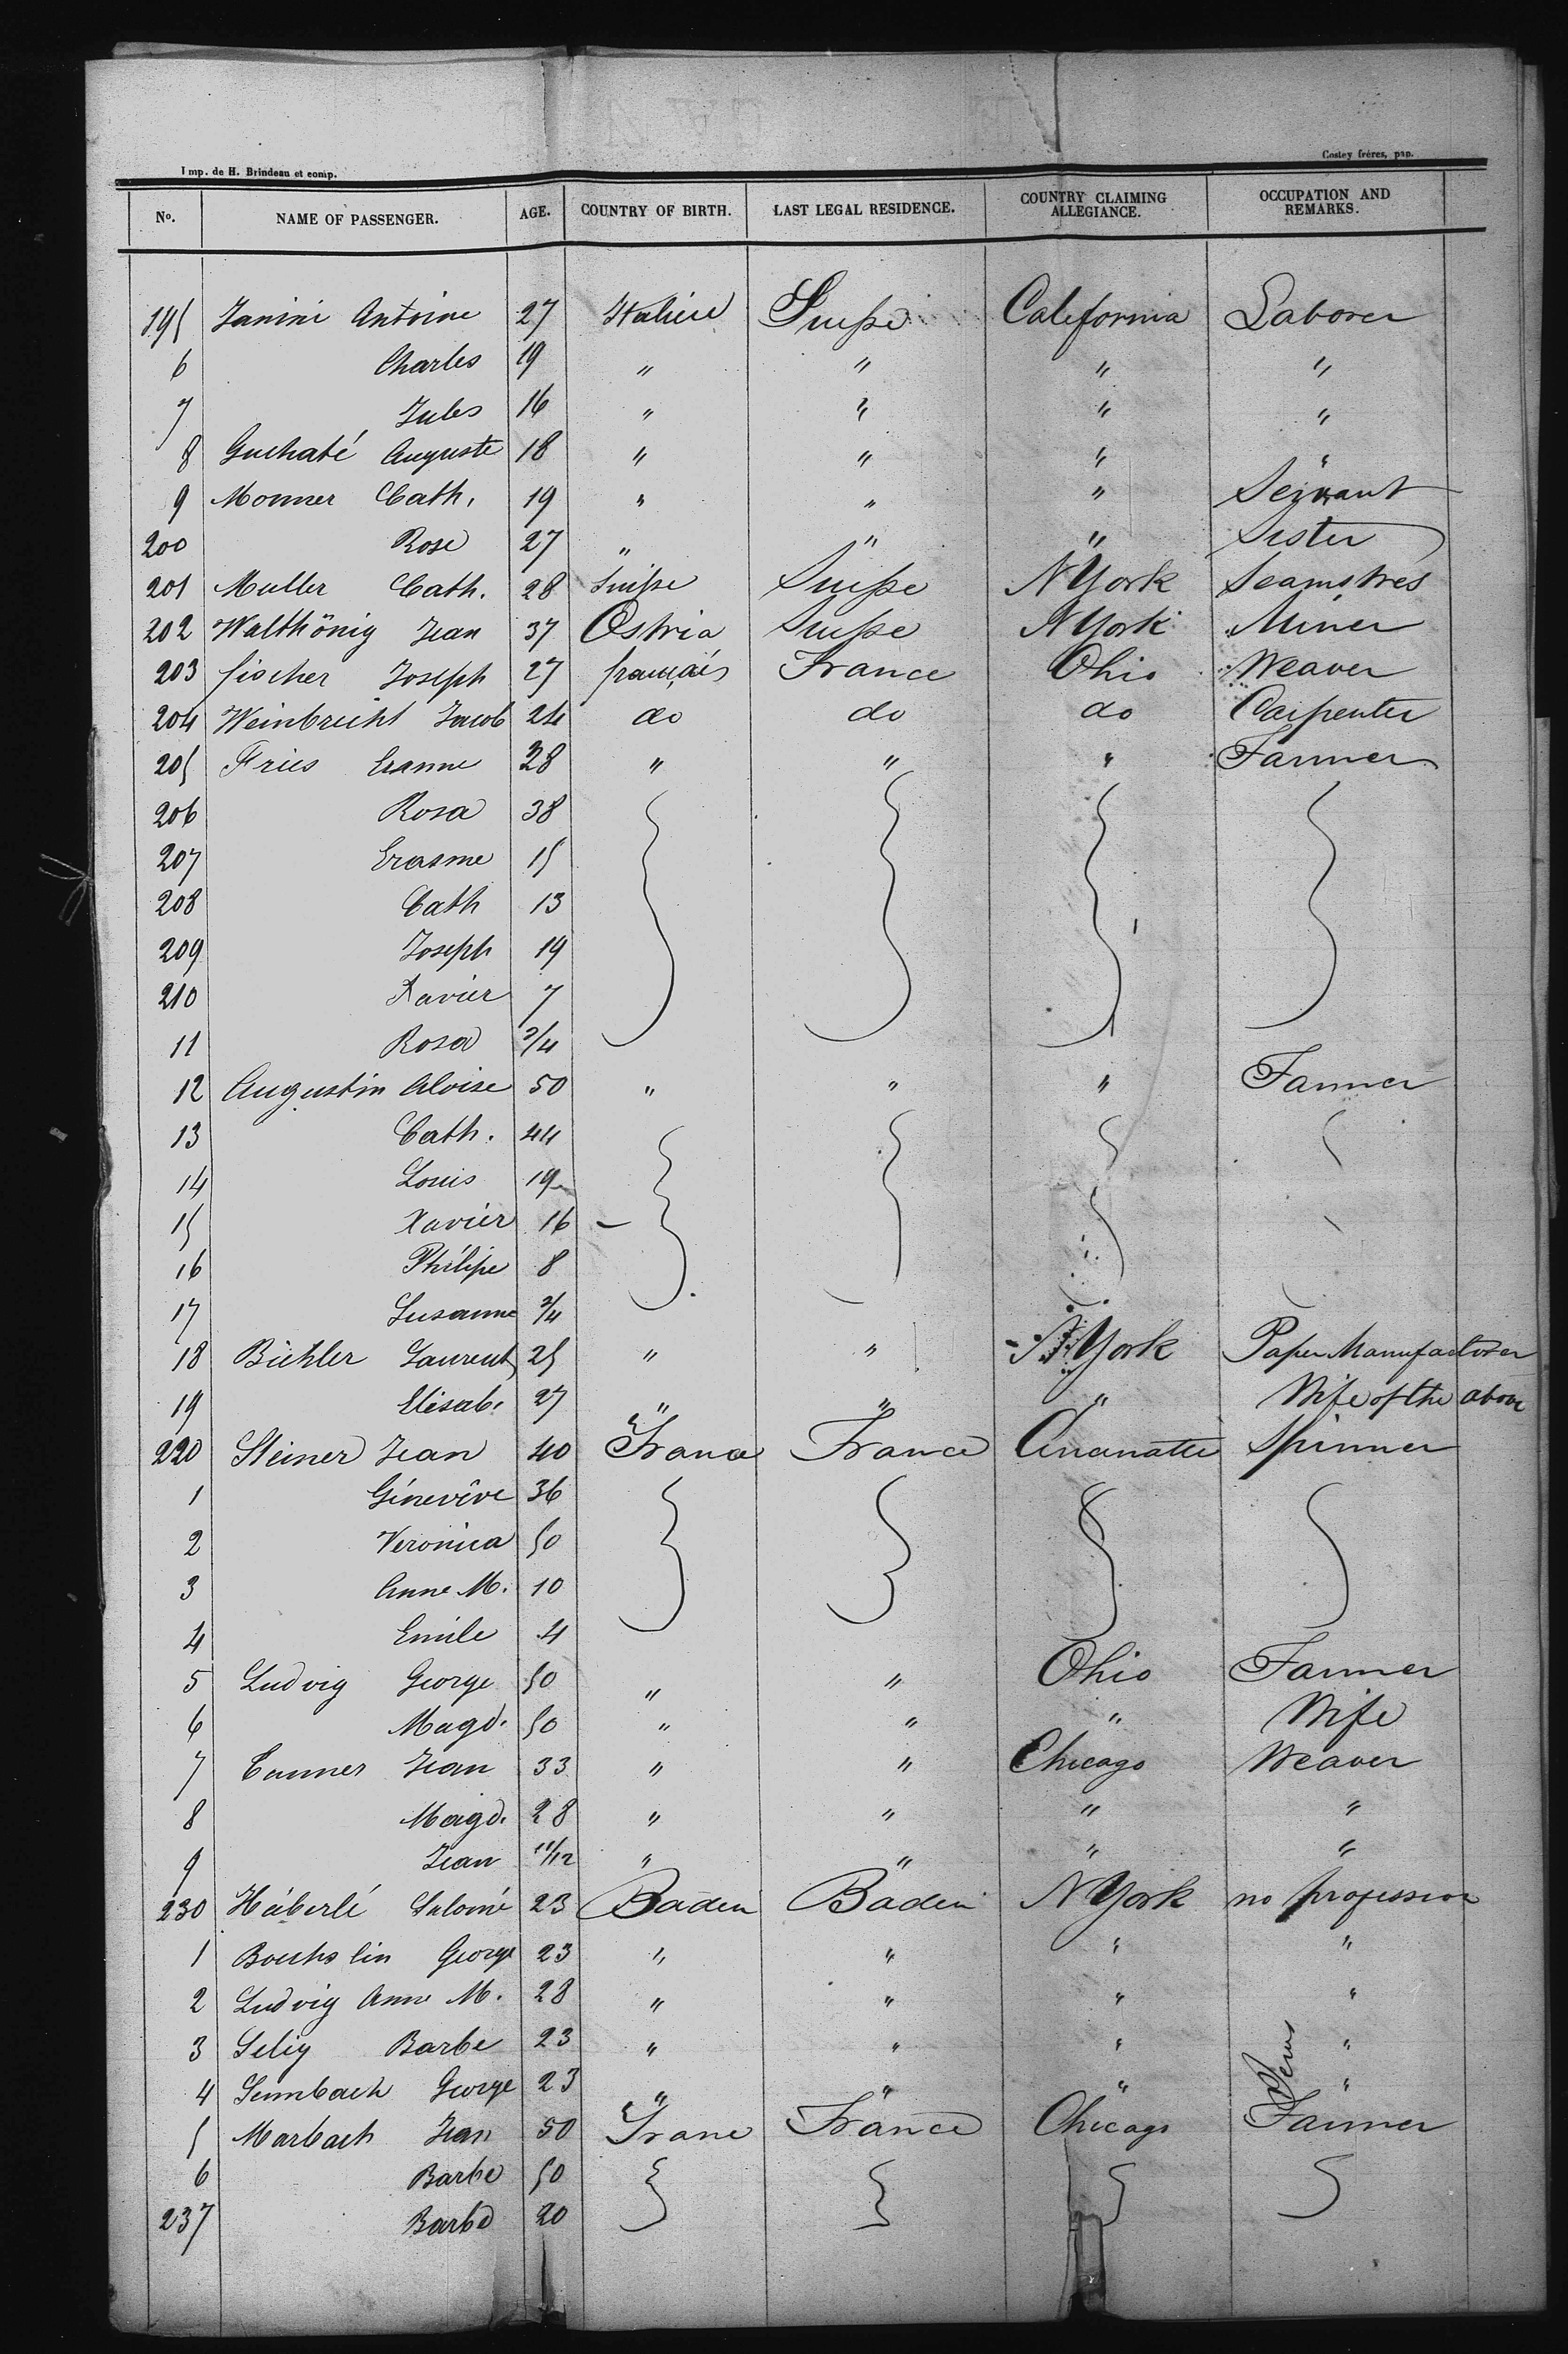 Imp. de H. Brindeau et comp. Costey frères, pap.
No. NAME OF PASSENGER. AGE. COUNTRY OF BIRTH. LAST LEGAL RESIDENCE. COUNTRY CLAIMING ALLEGIANCE. OCCUPATION AND REMARKS.
195 Janini Antoine 27 Italien Suisse California Laborer
6 Charles 19 " " " "
7 Jules 16 " " " "
8 Guchaté Auguste 18 " " " "
9 Monner Cath. 19 " " " Servant
200 Rose 27 " " " Sister
201 Muller Cath. 28 Suisse Suisse NYork Seamstres
202 Walthönig Jean 37 Ostria Suisse NYork Miner
203 fischer Joseph 27 français France Ohio Weaver
204 Weinbrecht Jacob 24 do do do Carpenter
205 Fries 38 " " " Farmer
206 Rosa 38
207 Erasme 15
208 Cath 13
209 Joseph 19
210 Xavier 7
11 Rosa 3/4
12 Augustin Aloise 50 " " " Farmer
13 Cath. 44
14 Louis 19
15 Xavier 16
16 Philipe 8
17 Susanne 3/4
18 Biehler Laurent 25 " " NYork Paper Manufactorer
19 Elisab. 27 " " " Wife of the above
220 Steiner Jean 40 France France Cincinattie Spinner
1 Génevîve 36
2 Veronica 50
3 Anne M. 10
4 Emile 4
5 Ludvig George 50 " " Ohio Farmer
6 Magd. 50 " " " Wife
7 Conner Jean 33 " " Chicago Weaver
8 Magd. 28 " " " "
9 Jean 11/12 " " " "
230 Häberlé Salomé 23 Baden Baden NYork no profession
1 Boechslin George 23 " " " "
2 Ludvig Anne M. 28 " " " "
3 Selig Barbe 23 " " " "
4 Sumbach George 23 " " " "
5 Marbach Jean 50 France France Chicago Farmer
6 Barbe 50
237 Barbe 20